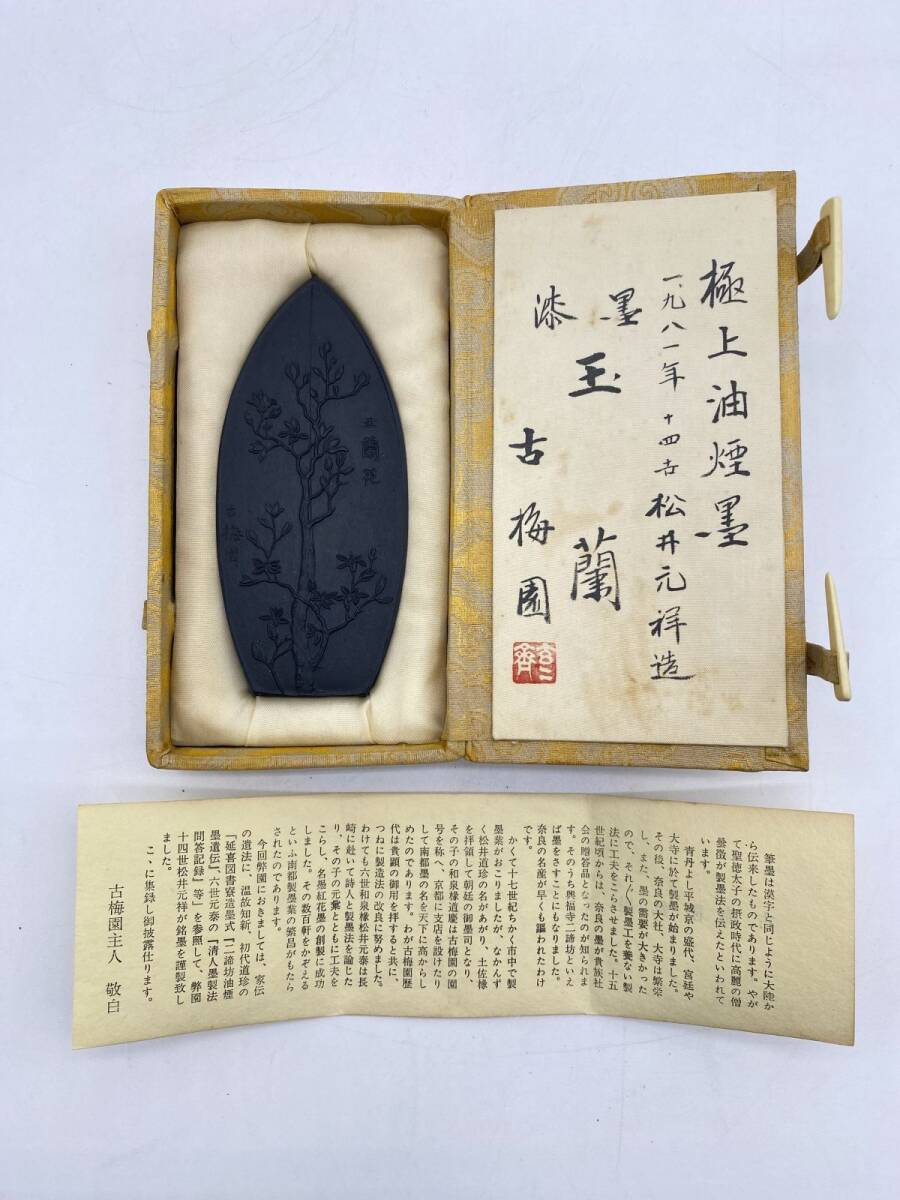 極上油煙墨
一九八一年 十四世 松井元祥造
漆墨
玉蘭
古梅園
玄々齋
玉蘭花
古梅園
筆墨は漢字と同じように大陸か
ら伝来したものであります。やが
て聖徳太子の摂政時代に高麗の僧
曇徴が製墨法を伝えたといわれて
います。
青丹よし平城京の盛代、宮廷や
大寺に於て製墨が始まりました。
その後、奈良の大社、大寺は繁栄
し、また、墨の需要が大きかった
ので、それ〴〵製墨工を養ない製
法に工夫をこらさせました。十五
世紀頃からは、奈良の墨が貴族社
会の贈答品となったのが知られま
す。そのうち興福寺二諦坊といえ
ば墨をさすことにもなりました。
奈良の名産が早くも謳われたわけ
です。
かくて十七世紀ちかく市中で製
墨業がおこりましたが、なかんず
く松井道珍の名があがり、土佐掾
を拝領して朝廷の御墨司となり、
その子の和泉掾道慶は古梅園の園
号を称へ、京都に支店を設けたり
して南都墨の名を天下に高からし
めたのであります。わが古梅園歴
代は貴顕の御用を拝すると共に、
つねに製造法の改良に努めました。
わけても六世和泉掾松井元泰は長
崎に赴いて詩人と製墨法を論じた
り、その子の元彙とともに工夫を
こらし、名墨紅花墨の創製に成功
しました。その数百軒をかぞえる
といふ南都製墨業の繁昌がもたら
されたのであります。
今回弊園におきましては、家伝
の遺法に、温故知新、初代道珍の
『延喜図書寮造墨式』『二諦坊油煙
墨遺伝』、六世元泰の『清人墨製法
問答記録』等」を参照して、弊園
十四世松井元祥が銘墨を謹製致し
ました。
こゝに集録し御披露仕ります。
古梅園主人 敬白